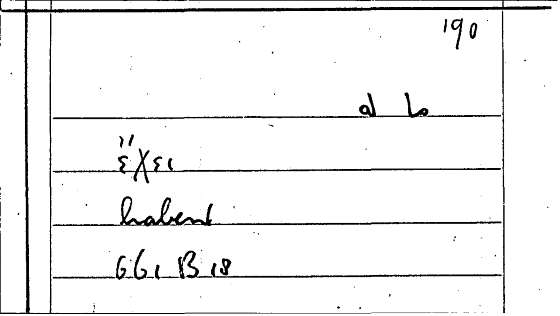 190
ἔχει
habent
661 B 18